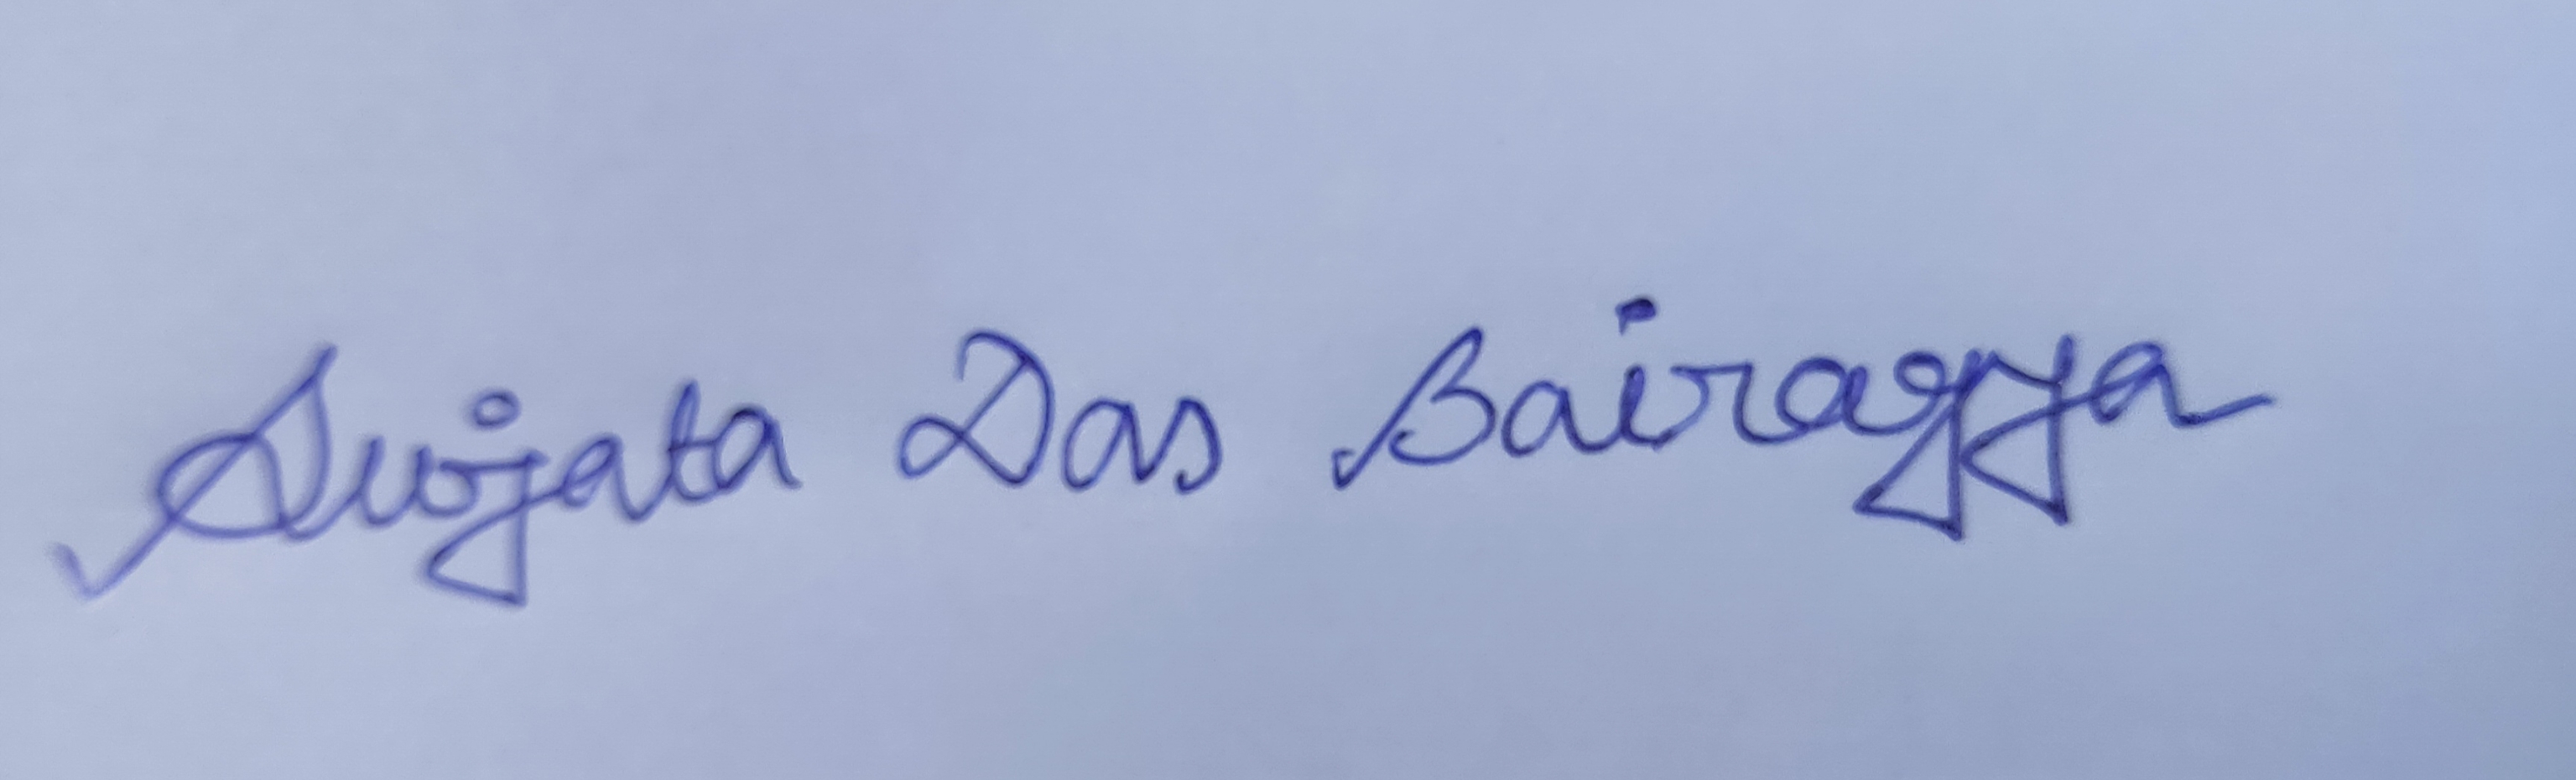 Sujata Das Bairagya